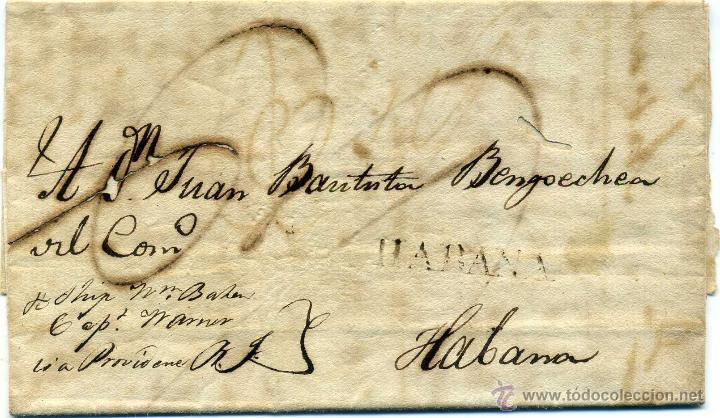 A Dn. Juan Bautista Bengoechea
del Como
HABANA
pr Ship Wm. Baker
Capt. Warner
via Providence R. I.
Habana
© www.todocoleccion.net